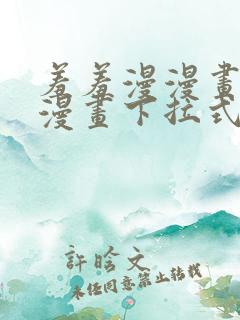 羞羞漫漫畫
漫畫下拉式
許晗文
未經同意禁止轉載